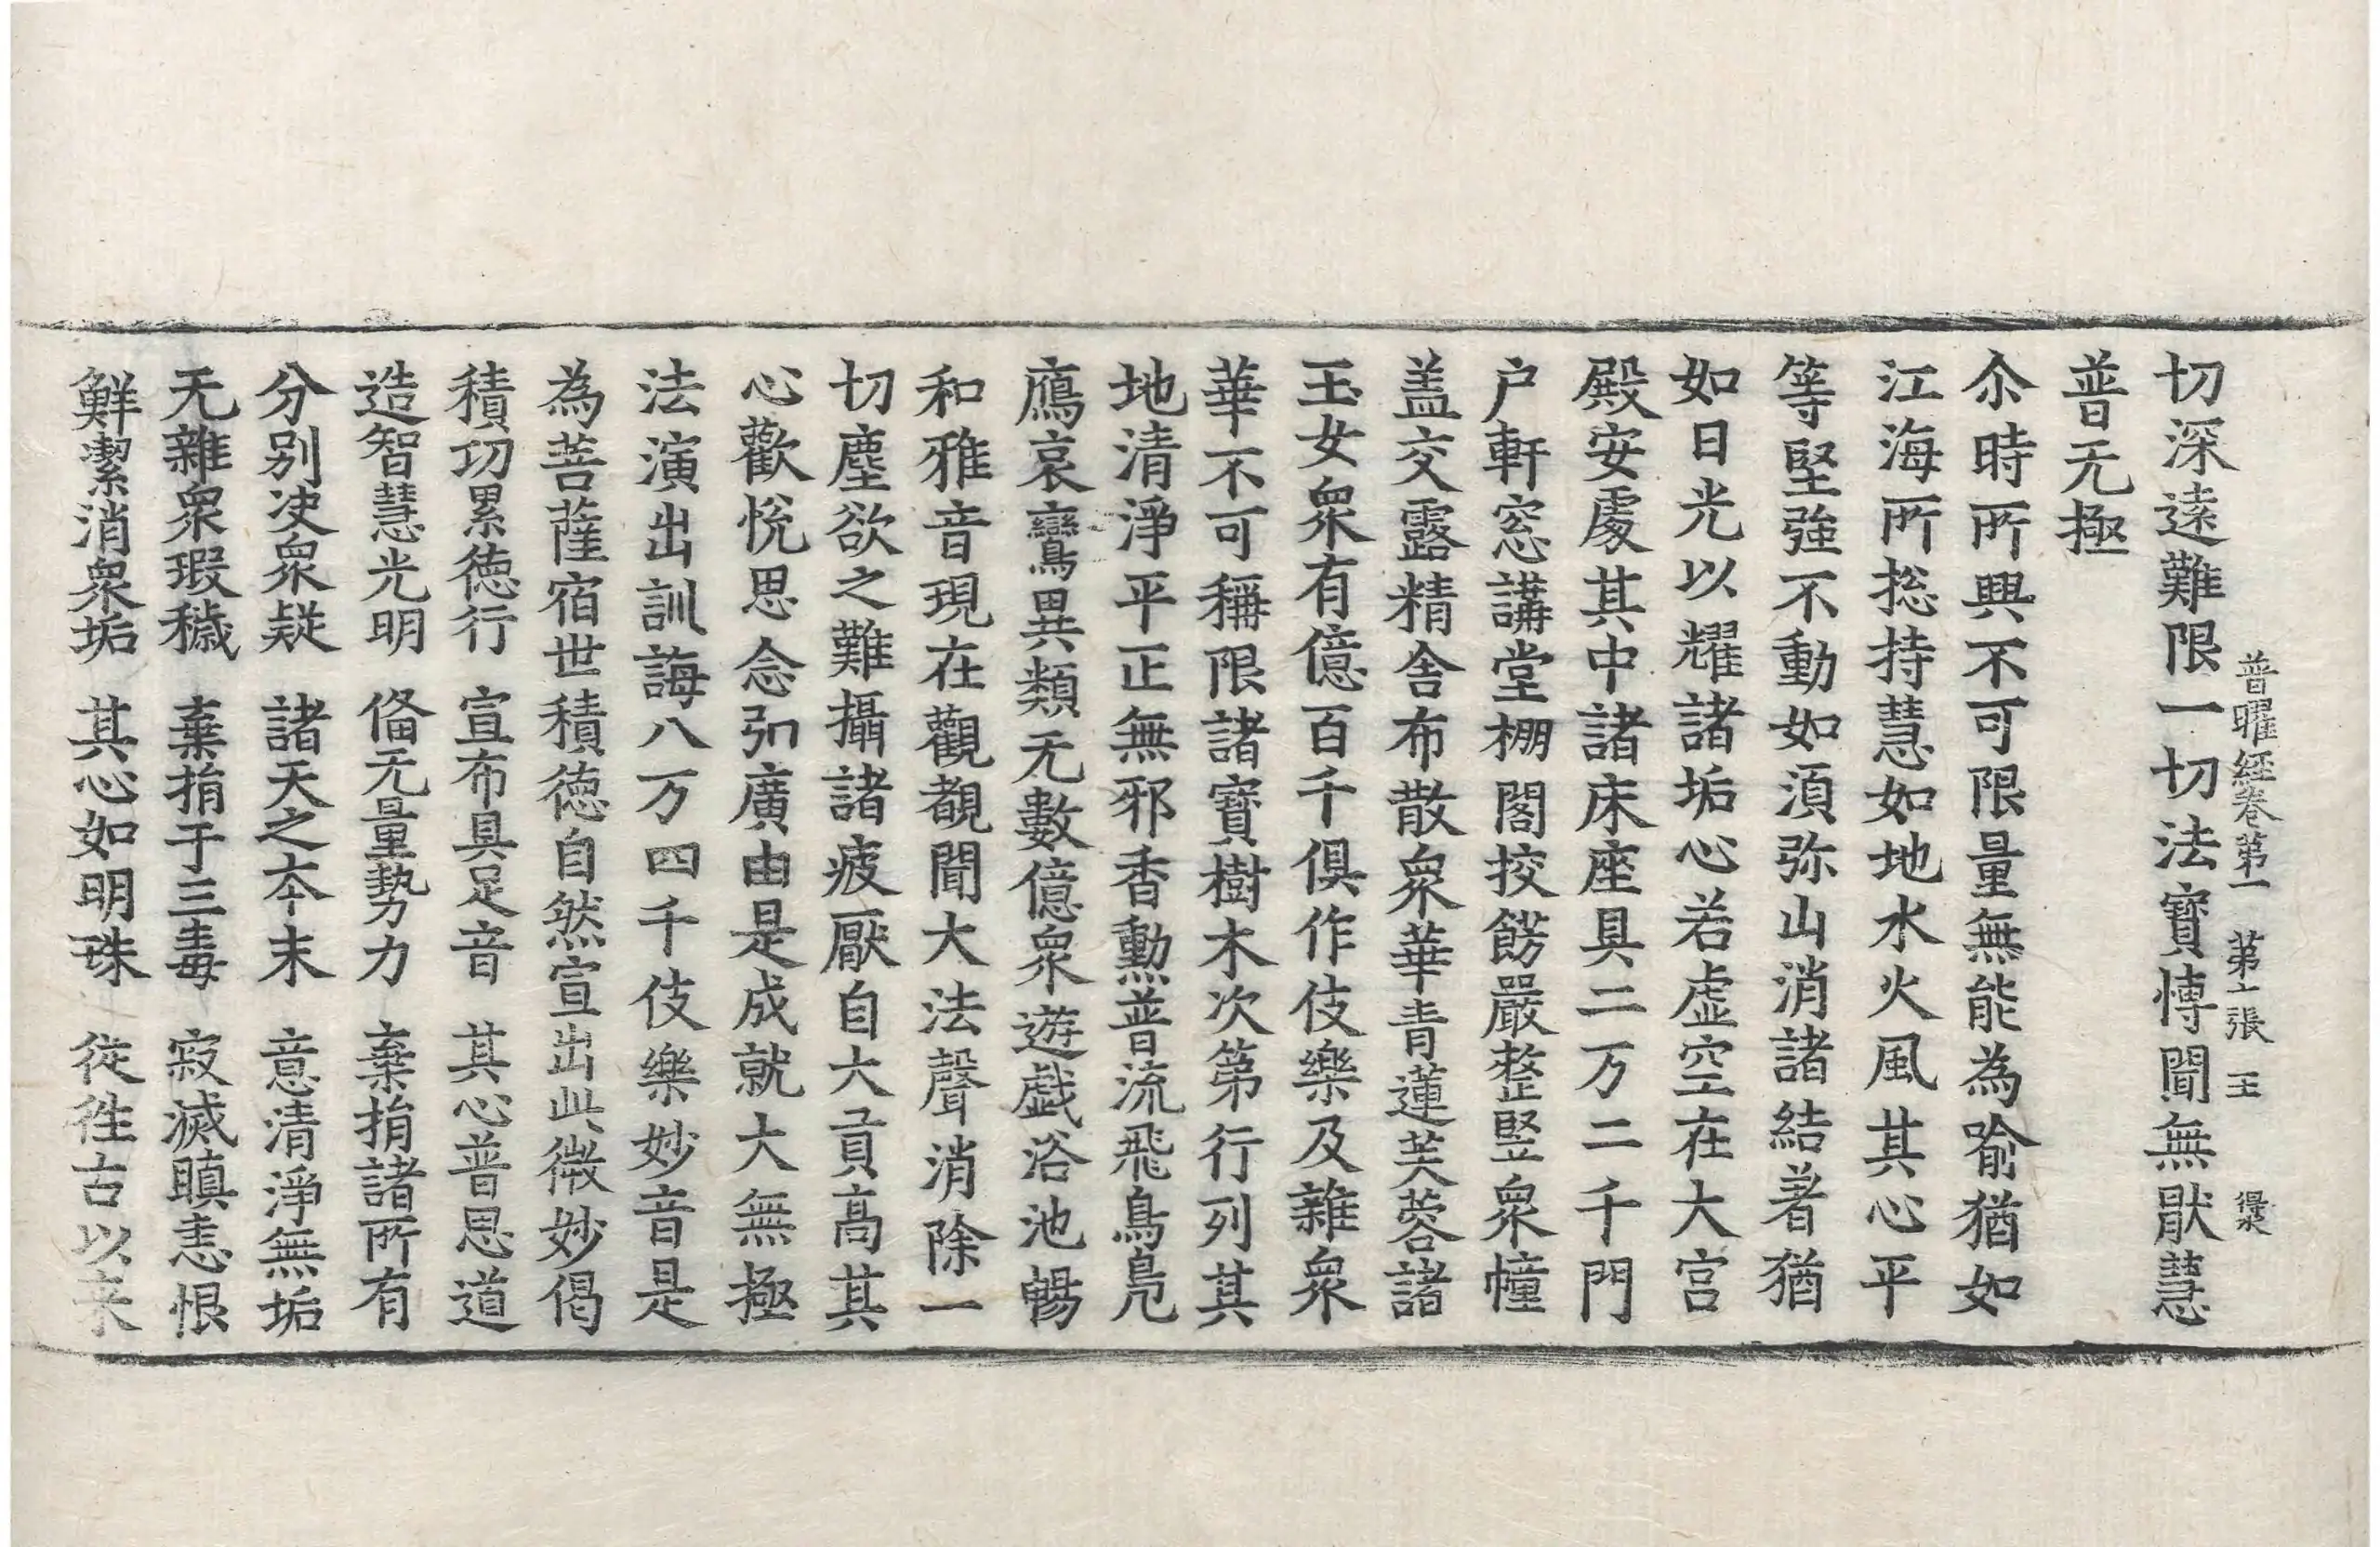 普曜經卷第一 第十張 王
切深遠難限一切法寶博聞無猒慧
普无極
尒時所興不可限量無能為喻猶如
江海所揔持慧如地水火風其心平
等堅強不動如湏弥山消諸結著猶
如日光以耀諸垢心若虛空在大宫
殿安處其中諸床座具二万二千門
户軒窓講堂棚閣挍餝嚴整竪衆幢
盖交露精舍布散衆華青蓮芙蓉諸
玉女衆有億百千俱作伎樂及雜衆
華不可稱限諸寶樹木次第行列其
地清淨平正無邪香勲普流飛鳥鳬
鴈哀鸞異類无數億衆遊戯浴池暢
和雅音現在觀覩聞大法聲消除一
切塵欲之難攝諸疲厭自大貢高其
心歡恱思念弘廣由是成就大無極
法演出訓誨八万四千伎樂妙音是
為菩薩宿世積德自然宣出此微妙偈
積功累德行 宣布具足音 其心普恩道
造智慧光明 俻无量勢力 棄捐諸所有
分别决衆疑 諸天之夲末 意清淨無垢
无雜衆瑕穢 棄捐于三毒 寂滅瞋恚恨
鮮潔消衆垢 其心如明珠 從徃古以来